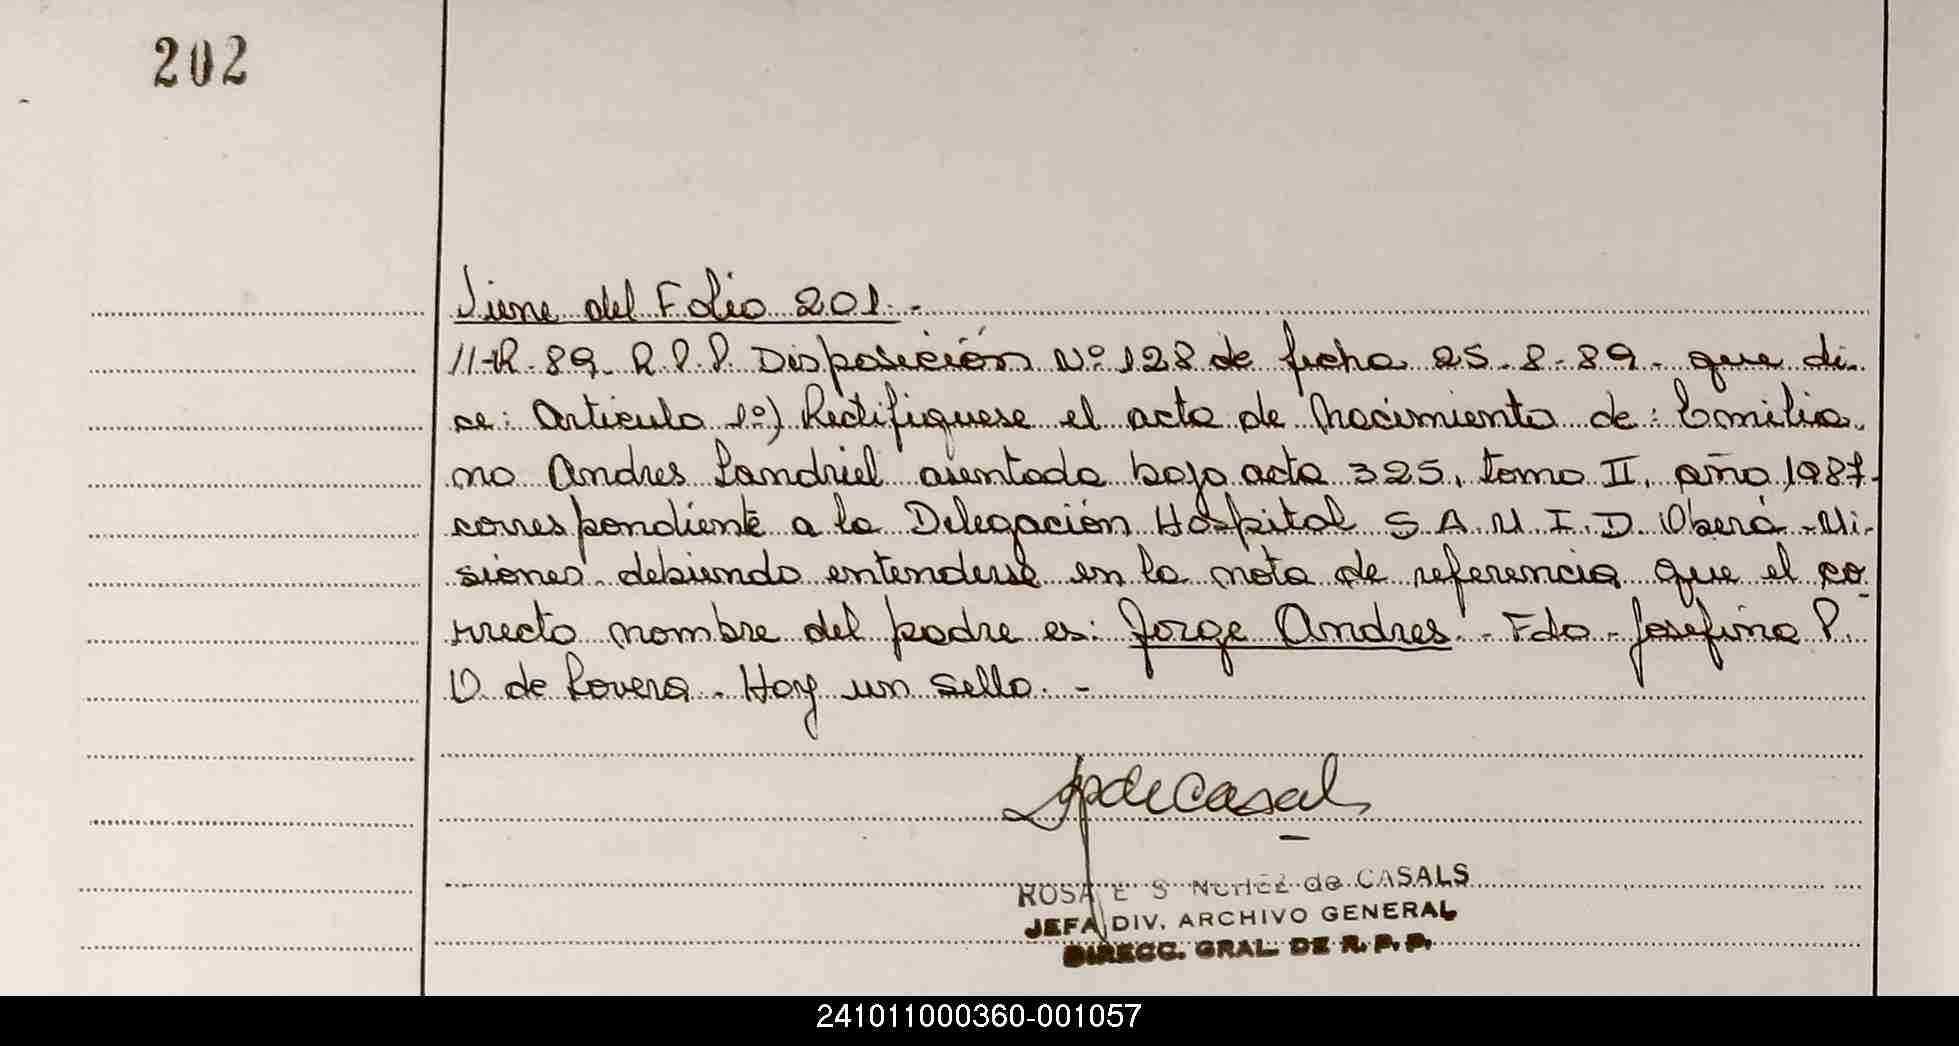 202
Viene del Folio 201.-
//-R-89- R.P.P. Disposición Nº 128 de fecha 25-8-89- que di-
ce: Articulo 1º) Rectifiquese el acta de Nacimiento de: Emilia-
no Andres Landriel asentada bajo acta 325, tomo II, año 1987-
correspondiente a la Delegación Hospital S.A.M.I.D. Oberá-Mi-
siones. debiendo entenderse en la nota de referencia que el co-
rrecto nombre del padre es: Jorge Andres - Fdo - Josefina P.
V. de Rovera. Hay un sello.-
de Casals
ROSA E S Nuñez de CASALS
JEFA DIV. ARCHIVO GENERAL
DIRECC. GRAL. DE R. P. P.
241011000360-001057